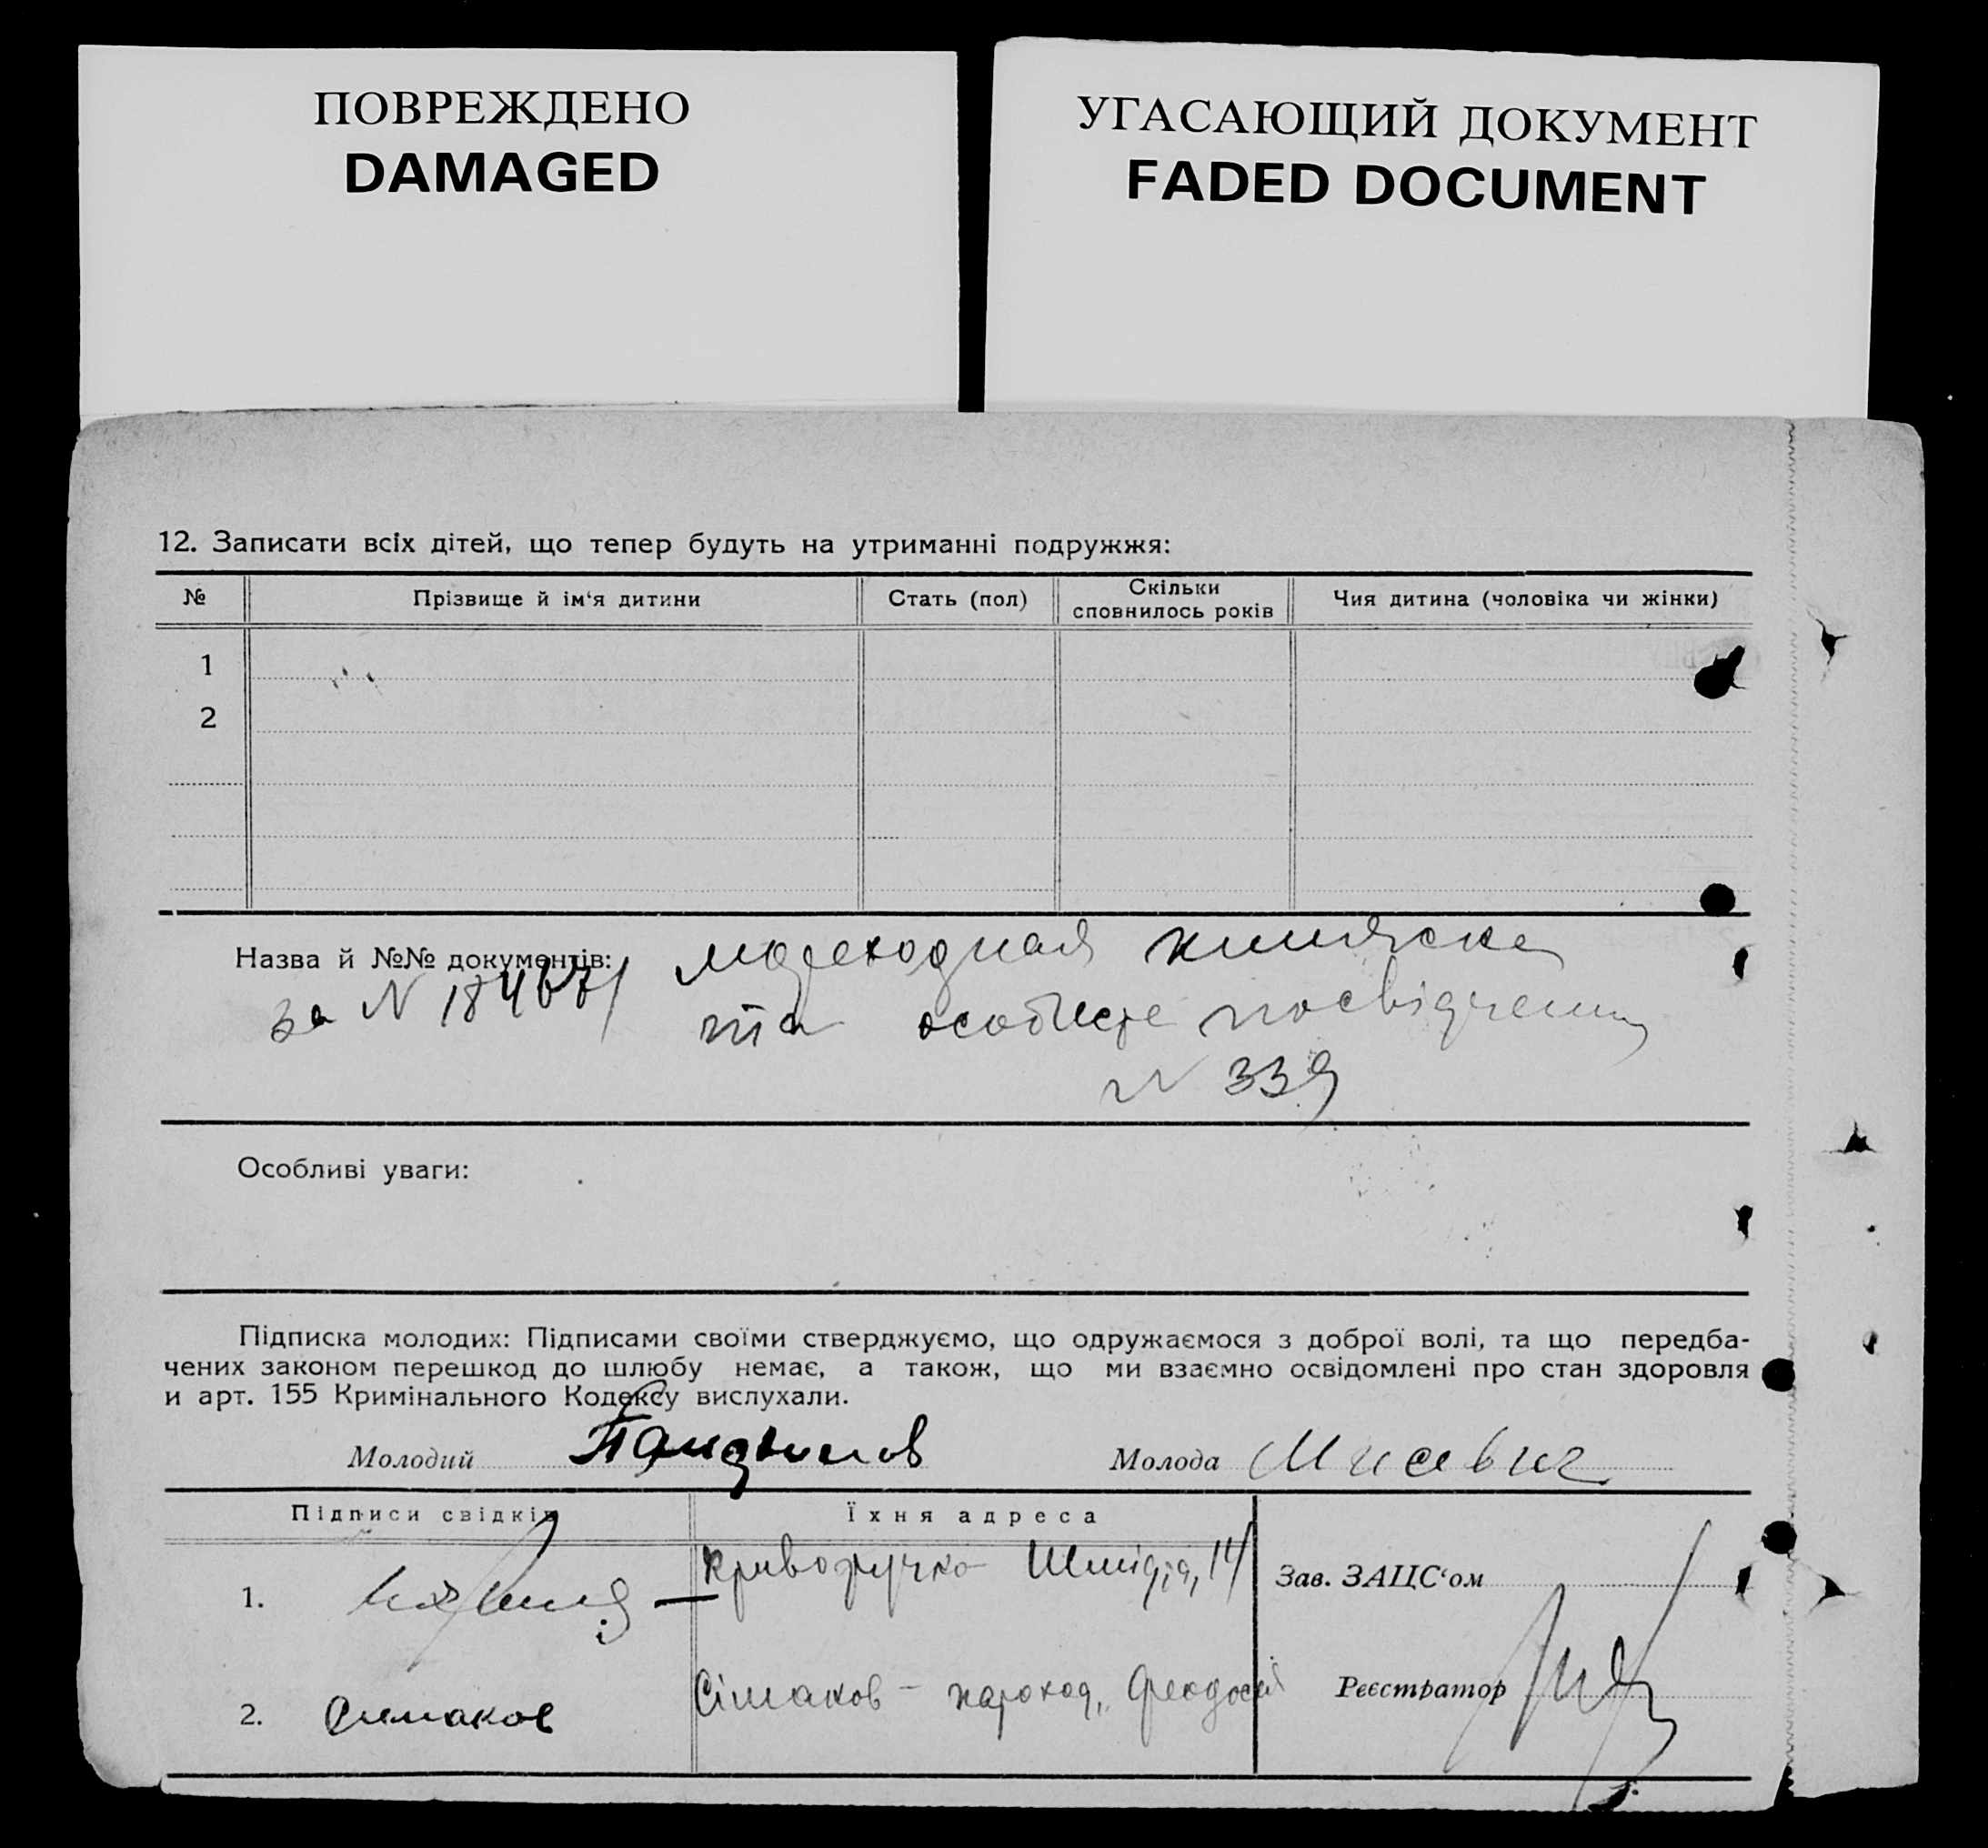 ПОВРЕЖДЕНО
DAMAGED
УГАСАЮЩИЙ ДОКУМЕНТ
FADED DOCUMENT
12. Записати всіх дітей, що тепер будуть на утриманні подружжя:
№ Прізвище й ім‘я дитини Стать (пол) Скільки сповнилось років Чия дитина (чоловіка чи жінки)
1
2
Назва й №№ документів: мореходная книжка
за N та особисте посвідчення
N 339
Особливі уваги:
Підписка молодих: Підписами своїми стверджуємо, що одружаємося з доброї волі, та що передба-
чених законом перешкод до шлюбу немає, а також, що ми взаємно освідомлені про стан здоровля
и арт. 155 Кримінального Кодексу вислухали.
Молодий Молода Мисевич
Підписи свідків Їхня адреса
1. Криворучко Шмідта, 14 Зав. ЗАЦС‘ом
2. Симаков Сімаков – пароход „Феодосія Реєстратор